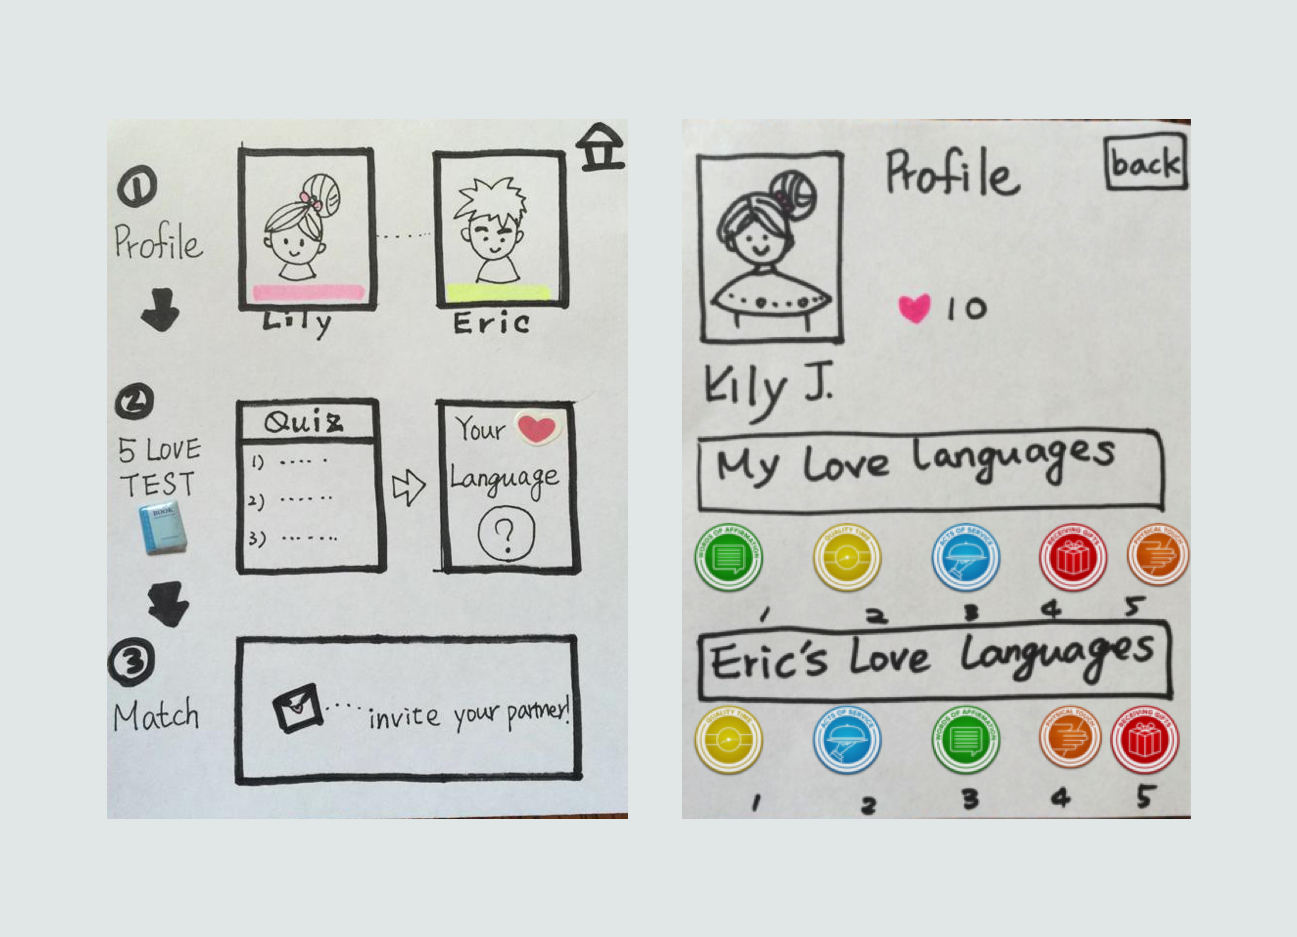 1
Profile
Lily
Eric
2
5 LOVE
TEST
BOOK
Quiz
1)
2)
3)
Your
Language
?
3
Match
invite your partner!
Profile
back
10
Lily J.
My Love Languages
WORDS OF AFFIRMATION
QUALITY TIME
ACTS OF SERVICE
RECEIVING GIFTS
PHYSICAL TOUCH
1 2 3 4 5
Eric's Love Languages
QUALITY TIME
ACTS OF SERVICE
WORDS OF AFFIRMATION
PHYSICAL TOUCH
RECEIVING GIFTS
1 2 3 4 5